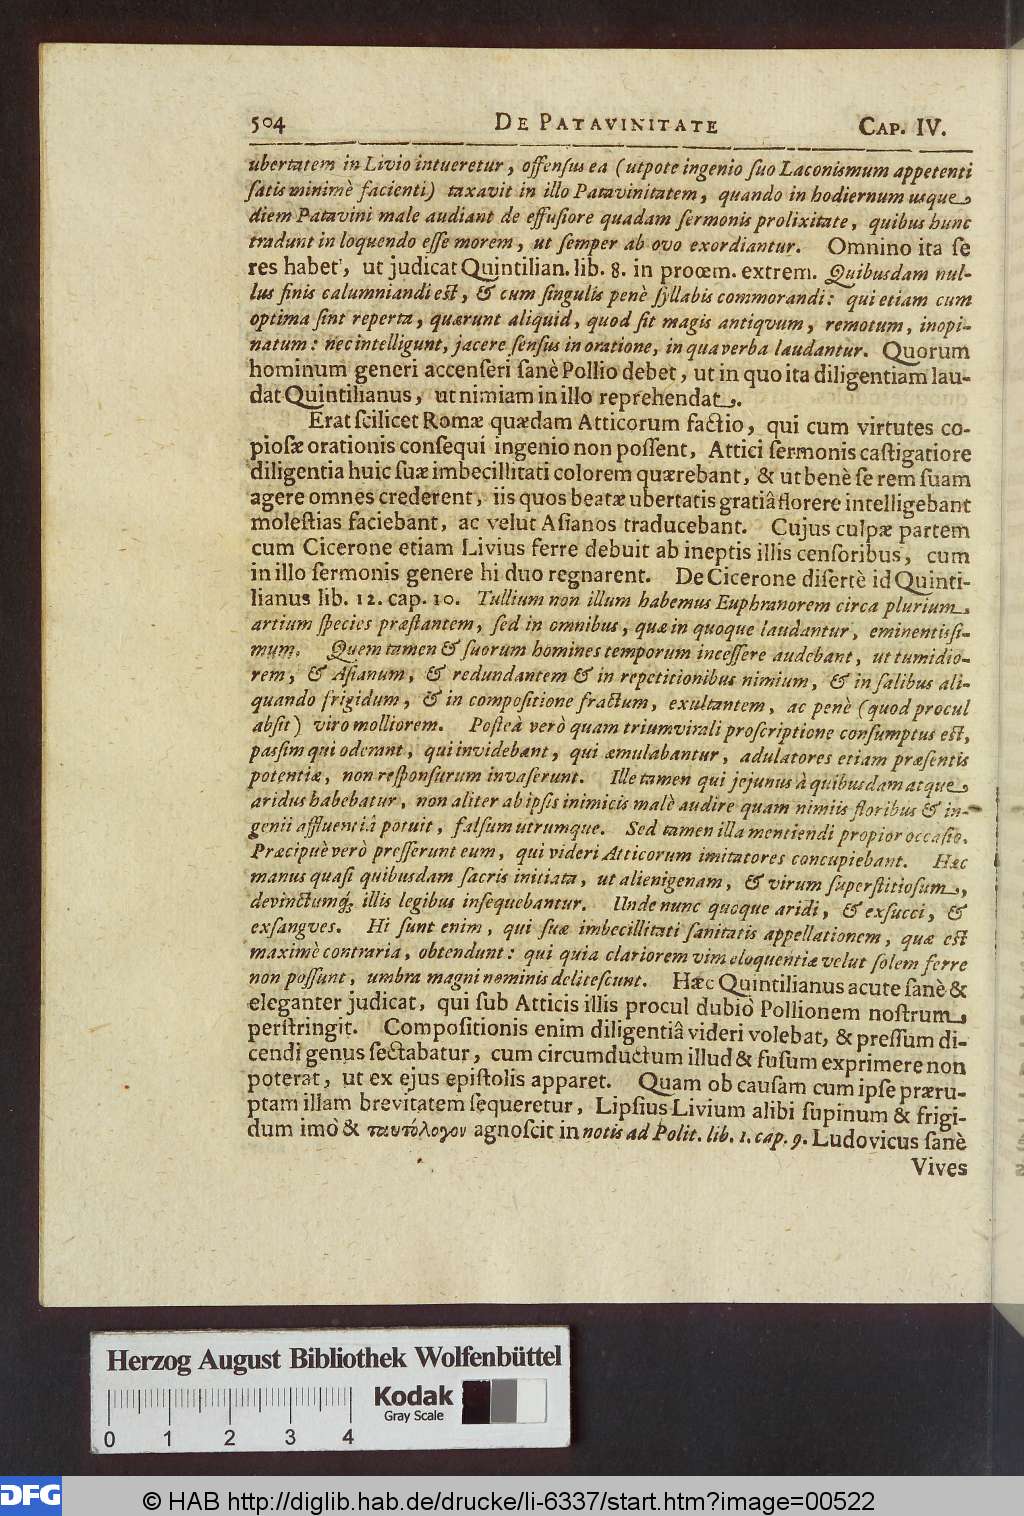 504 DE PATAVINITATE CAP. IV.
ubertatem in Livio intueretur, offensus ea (utpote ingenio suo Laconismum appetenti
satis minimè facienti) taxavit in illo Patavinitatem, quando in hodiernum usque
diem Patavini male audiant de effusiore quadam sermonis prolixitate, quibus hunc
tradunt in loquendo esse morem, ut semper ab ovo exordiantur. Omnino ita se
res habet, ut judicat Quintilian. lib. 8. in proœm. extrem. Quibusdam nul-
lus finis calumniandi est, & cum singulis penè syllabis commorandi: qui etiam cum
optima sint reperta, quærunt aliquid, quod sit magis antiqvum, remotum, inopi-
natum: nec intelligunt, jacere sensus in oratione, in qua verba laudantur. Quorum
hominum generi accenseri sanè Pollio debet, ut in quo ita diligentiam lau-
dat Quintilianus, ut nimiam in illo reprehendat.
Erat scilicet Romæ quædam Atticorum factio, qui cum virtutes co-
piosæ orationis consequi ingenio non possent, Attici sermonis castigatiore
diligentia huic suæ imbecillitati colorem quærebant, & ut benè se rem suam
agere omnes crederent, iis quos beatæ ubertatis gratiâ florere intelligebant
molestias faciebant, ac velut Asianos traducebant. Cujus culpæ partem
cum Cicerone etiam Livius ferre debuit ab ineptis illis censoribus, cum
in illo sermonis genere hi duo regnarent. De Cicerone disertè id Quinti-
lianus lib. 12. cap. 10. Tullium non illum habemus Euphranorem circa plurium
artium species præstantem, sed in omnibus, quæ in quoque laudantur, eminentissi-
mum. Quem tamen & suorum homines temporum incessere audebant, ut tumidio-
rem, & Asianum, & redundantem & in repetitionibus nimium, & in salibus ali-
quando frigidum, & in compositione fractum, exultantem, ac penè (quod procul
absit) viro molliorem. Posteà verò quam triumvirali proscriptione consumptus est,
passim qui oderant, qui invidebant, qui æmulabantur, adulatores etiam præsentis
potentiæ, non responsurum invaserunt. Ille tamen qui jejunus à quibusdam atque
aridus habebatur, non aliter ab ipsis inimicis malè audire quam nimiis floribus & in-
genii affluentiâ potuit, falsum utrumque. Sed tamen illa mentiendi propior occasio.
Præcipuè verò presserunt eum, qui videri Atticorum imitatores concupiebant. Hæc
manus quasi quibusdam sacris initiata, ut alienigenam, & virum superstitiosum,
devinctumq; illis legibus insequebantur. Unde nunc quoque aridi, & exsucci, &
exsangves. Hi sunt enim, qui suæ imbecillitati sanitatis appellationem, quæ est
maximè contraria, obtendunt: qui quia clariorem vim eloquentiæ velut solem ferre
non possunt, umbra magni nominis delitescunt. Hæc Quintilianus acute sanè &
eleganter judicat, qui sub Atticis illis procul dubio Pollionem nostrum
perstringit. Compositionis enim diligentiâ videri volebat, & pressum di-
cendi genus sectabatur, cum circumductum illud & fusum exprimere non
poterat, ut ex ejus epistolis apparet. Quam ob causam cum ipse præru-
ptam illam brevitatem sequeretur, Lipsius Livium alibi supinum & frigi-
dum imò & ταυτόλογον agnoscit in notis ad Polit. lib. 1. cap. 9. Ludovicus sanè
Vives
Herzog August Bibliothek Wolfenbüttel
Kodak
Gray Scale
0 1 2 3 4
DFG
© HAB http://diglib.hab.de/drucke/li-6337/start.htm?image=00522